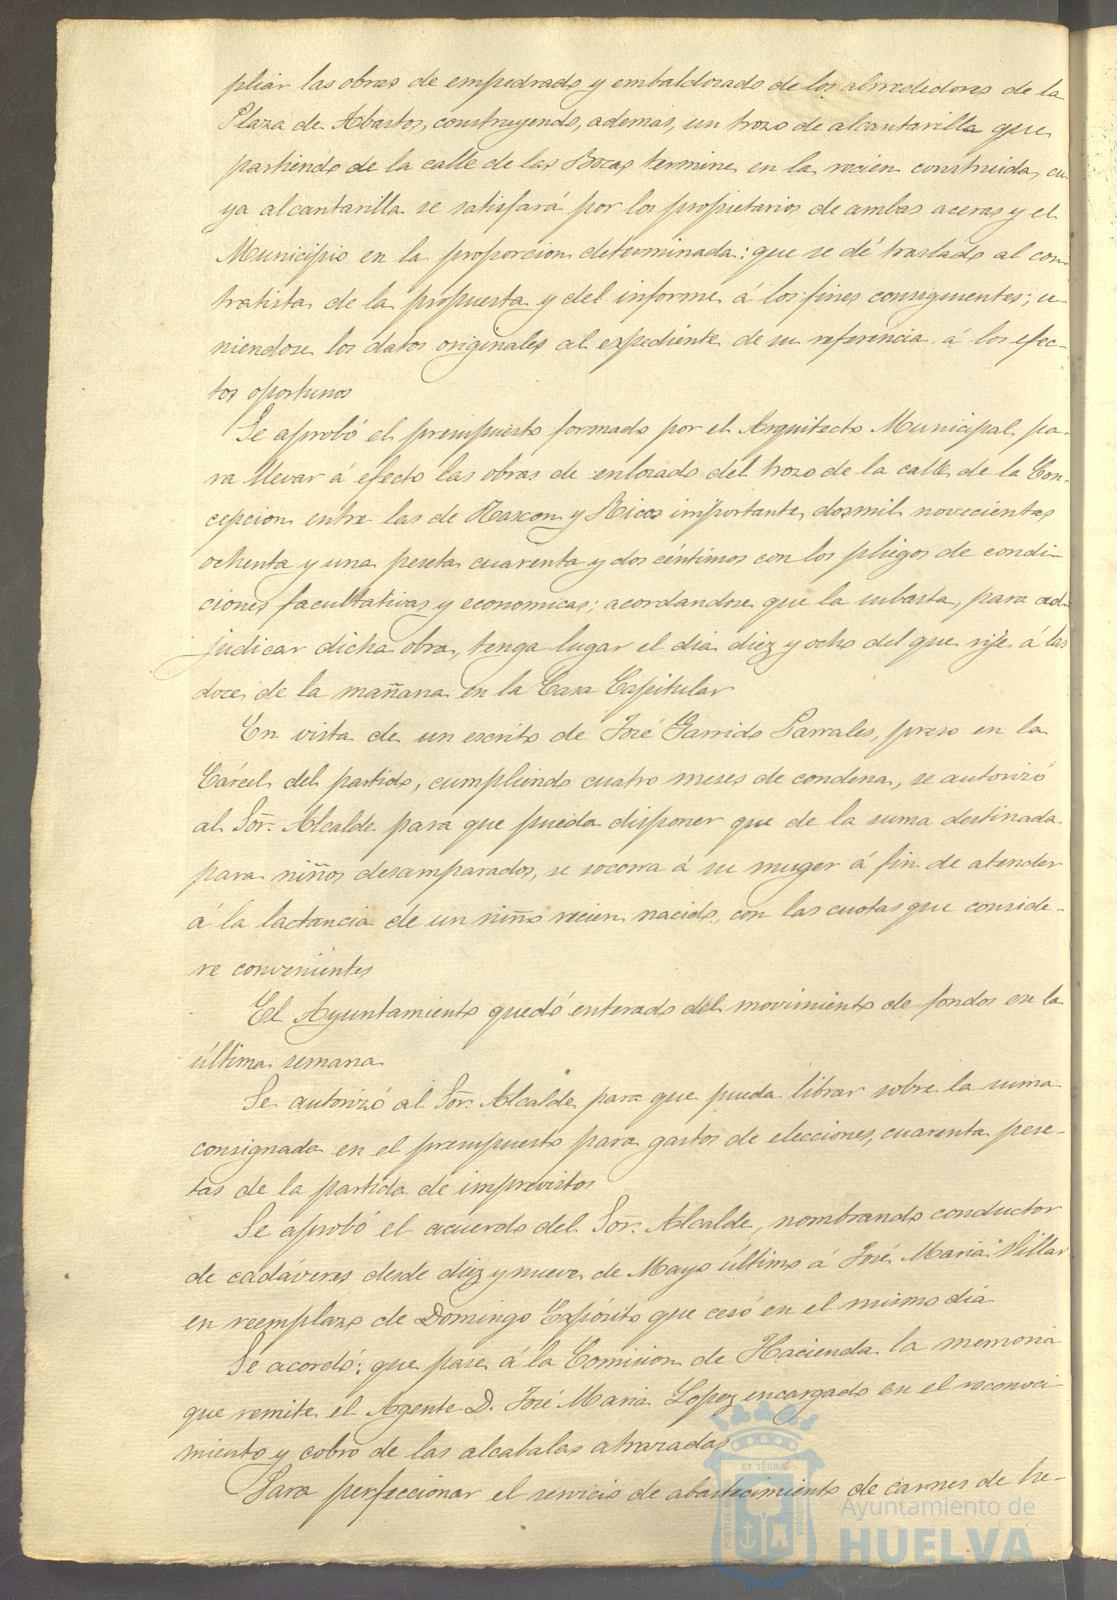 pliar las obras de empedrado y embaldozado de los alrrededores de la
Plaza de Abastos, construyendo, ademas, un trozo de alcantarilla que
partiendo de la calle de las Bocas termine en la recien construida, cu-
ya alcantarilla se satisfará por los propietarios de ambas aceras y el
Municipio en la proporcion determinada: que se dé traslado al con-
tratista de la propuesta y del informe á los fines consiguientes; u-
niendose los datos originales al expediente de su referencia á los efec-
tos oportunos
Se aprobó el presupuesto formado por el Arquitecto Municipal pa-
ra llevar á efecto las obras de enlozado del trozo de la calle de la Con-
cepcion entre las de Rascon y Ricos importante dosmil novecientas
ochenta y una peseta cuarenta y dos céntimos con los pliegos de condi-
ciones facultativas y economicas; acordandose que la subasta, para ad-
judicar dicha obra, tenga lugar el dia diez y ocho del que rije á las
doce de la mañana en la Casa Capitular
En vista de un escrito de José Garrido Parrales, preso en la
Cárcel del partido, cumpliendo cuatro meses de condena, se autorizó
al Sor. Alcalde para que pueda disponer que de la suma destinada
para niños desamparados, se socorra á su muger á fin de atender
á la lactancia de un niño recien nacido, con las cuotas que conside-
re convenientes
El Ayuntamiento quedó enterado del movimiento de fondos en la
última semana
Se autorizó al Sor. Alcalde para que pueda librar sobre la suma
consignada en el presupuesto para gastos de elecciones, cuarenta pese-
tas de la partida de imprevistos
Se aprobó el acuerdo del Sor. Alcalde, nombrando conductor
de cadáveres desde diez y nueve de Mayo último á José Maria Villar
en reemplazo de Domingo Expósito que cesó en el mismo dia
Se acordó: que pase á la Comision de Hacienda la memoria
que remite el Agente D. José Maria Lopez encargado en el reconoci-
miento y cobro de las alcabalas atrazadas
Para perfeccionar el servicio de abastecimiento de carnes de he-
Ayuntamiento de
HUELVA